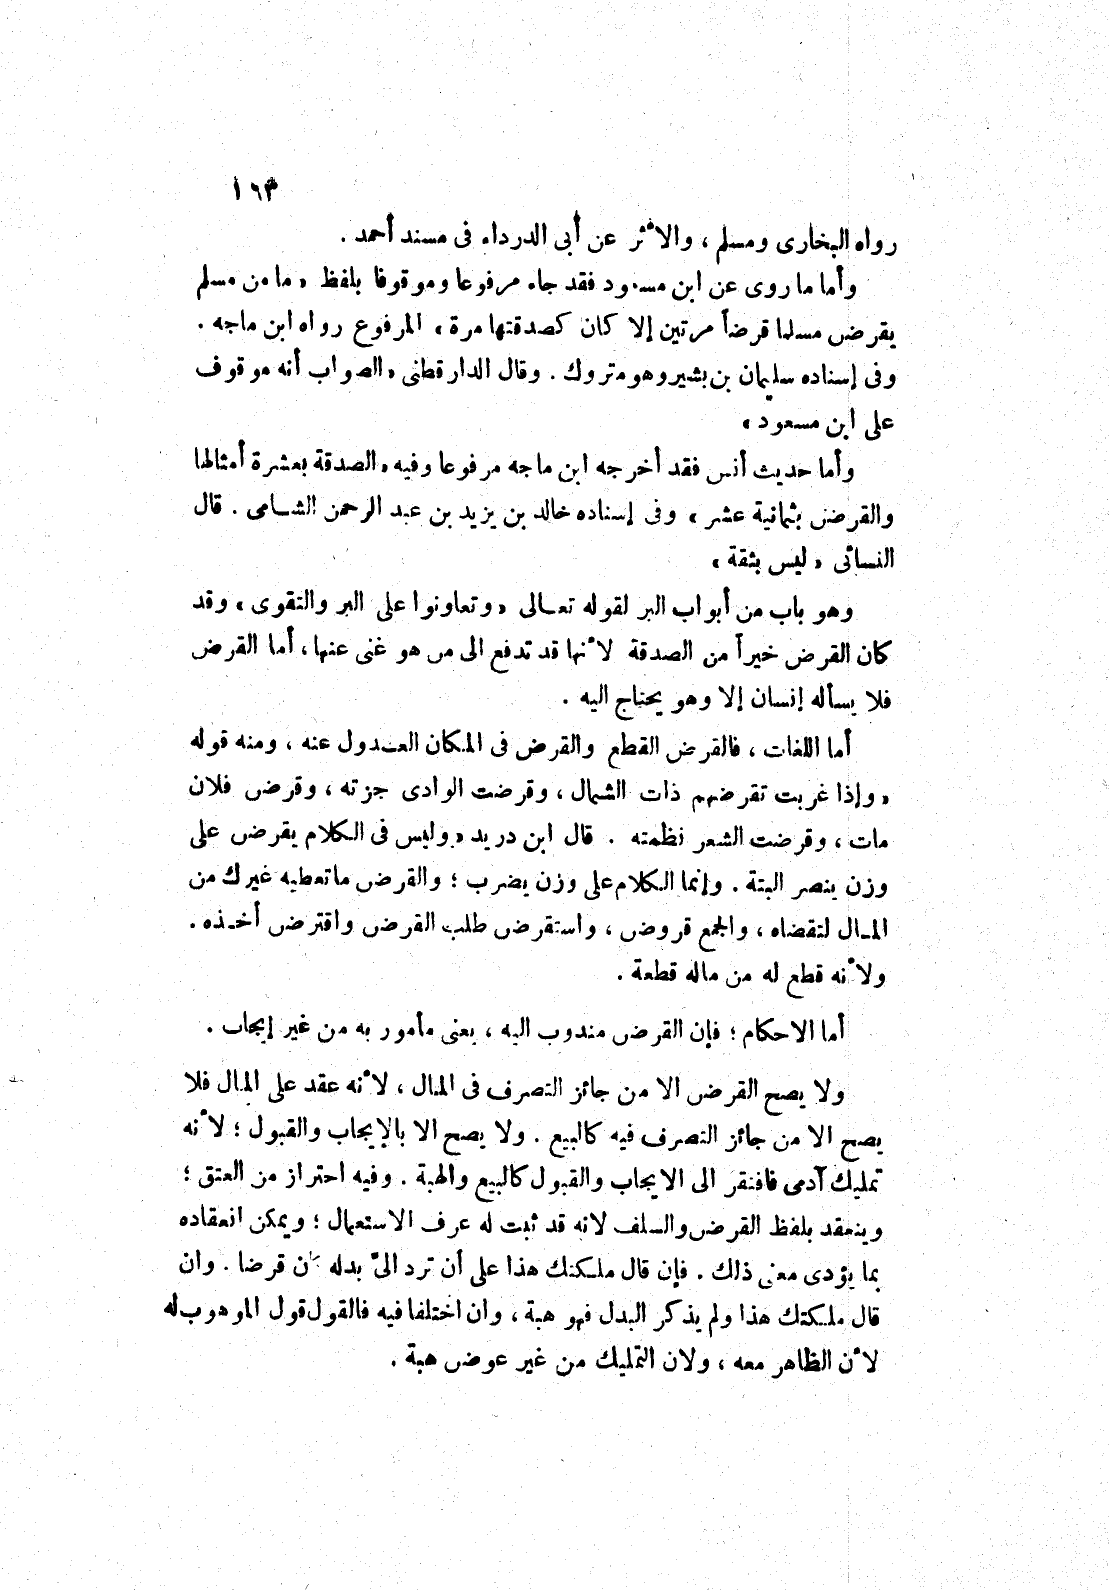 ١٦٣
رواه البخارى ومسلم ، والأثر عن أبى الدرداء فى مسند أحمد .
وأما ما روى عن ابن مسعود فقد جاء مرفوعا وموقوفا بلفظ « ما من مسلم
يقرض مسلما قرضاً مرتين إلا كان كصدقتها مرة » المرفوع رواه ابن ماجه .
وفى إسناده سليمان بن بشير وهو متروك . وقال الدارقطنى « الصواب أنه موقوف
على ابن مسعود »
وأما حديث أنس فقد أخرجه ابن ماجه مرفوعا وفيه « الصدقة بعشرة أمثالها
والقرض بثمانية عشر » وفى إسناده خالد بن يزيد بن عبد الرحمن الشامى . قال
النسائى « ليس بثقة »
وهو باب من أبواب البر لقوله تعالى « وتعاونوا على البر والتقوى » وقد
كان القرض خيراً من الصدقة لأنها قد تدفع الى من هو غنى عنها ، أما القرض
فلا يسأله إنسان إلا وهو يحتاج اليه .
أما اللغات ، فالقرض القطع والقرض فى المكان العدول عنه ، ومنه قوله
« وإذا غربت تقرضهم ذات الشمال ، وقرضت الوادى جزته ، وقرض فلان
مات ، وقرضت الشعر نظمته . قال ابن دريد « وليس فى الكلام يقرض على
وزن ينصر البتة . وإنما الكلام على وزن يضرب ؛ والقرض ما تعطيه غيرك من
المال لتقضاه ، والجمع قروض ، واستقرض طلب القرض واقترض أخذه .
ولأنه قطع له من ماله قطعة .
أما الاحكام ؛ فإن القرض مندوب اليه ، يعنى مأمور به من غير إيجاب .
ولا يصح القرض الا من جائز التصرف فى المال ، لأنه عقد على المال فلا
يصح الا من جائز التصرف فيه كالبيع . ولا يصح الا بالإيجاب والقبول ؛ لأنه
تمليك آدمى فافتقر الى الايجاب والقبول كالبيع والهبة . وفيه احتراز من العتق ؛
وينعقد بلفظ القرض والسلف لانه قد ثبت له عرف الاستعمال ؛ ويمكن انعقاده
بما يؤدى معنى ذلك . فإن قال ملكتك هذا على أن ترد الىّ بدله كان قرضا . وان
قال ملكتك هذا ولم يذكر البدل فهو هبة ، وان اختلفا فيه فالقول قول الموهوب له
لأن الظاهر معه ، ولان التمليك من غير عوض هبة .